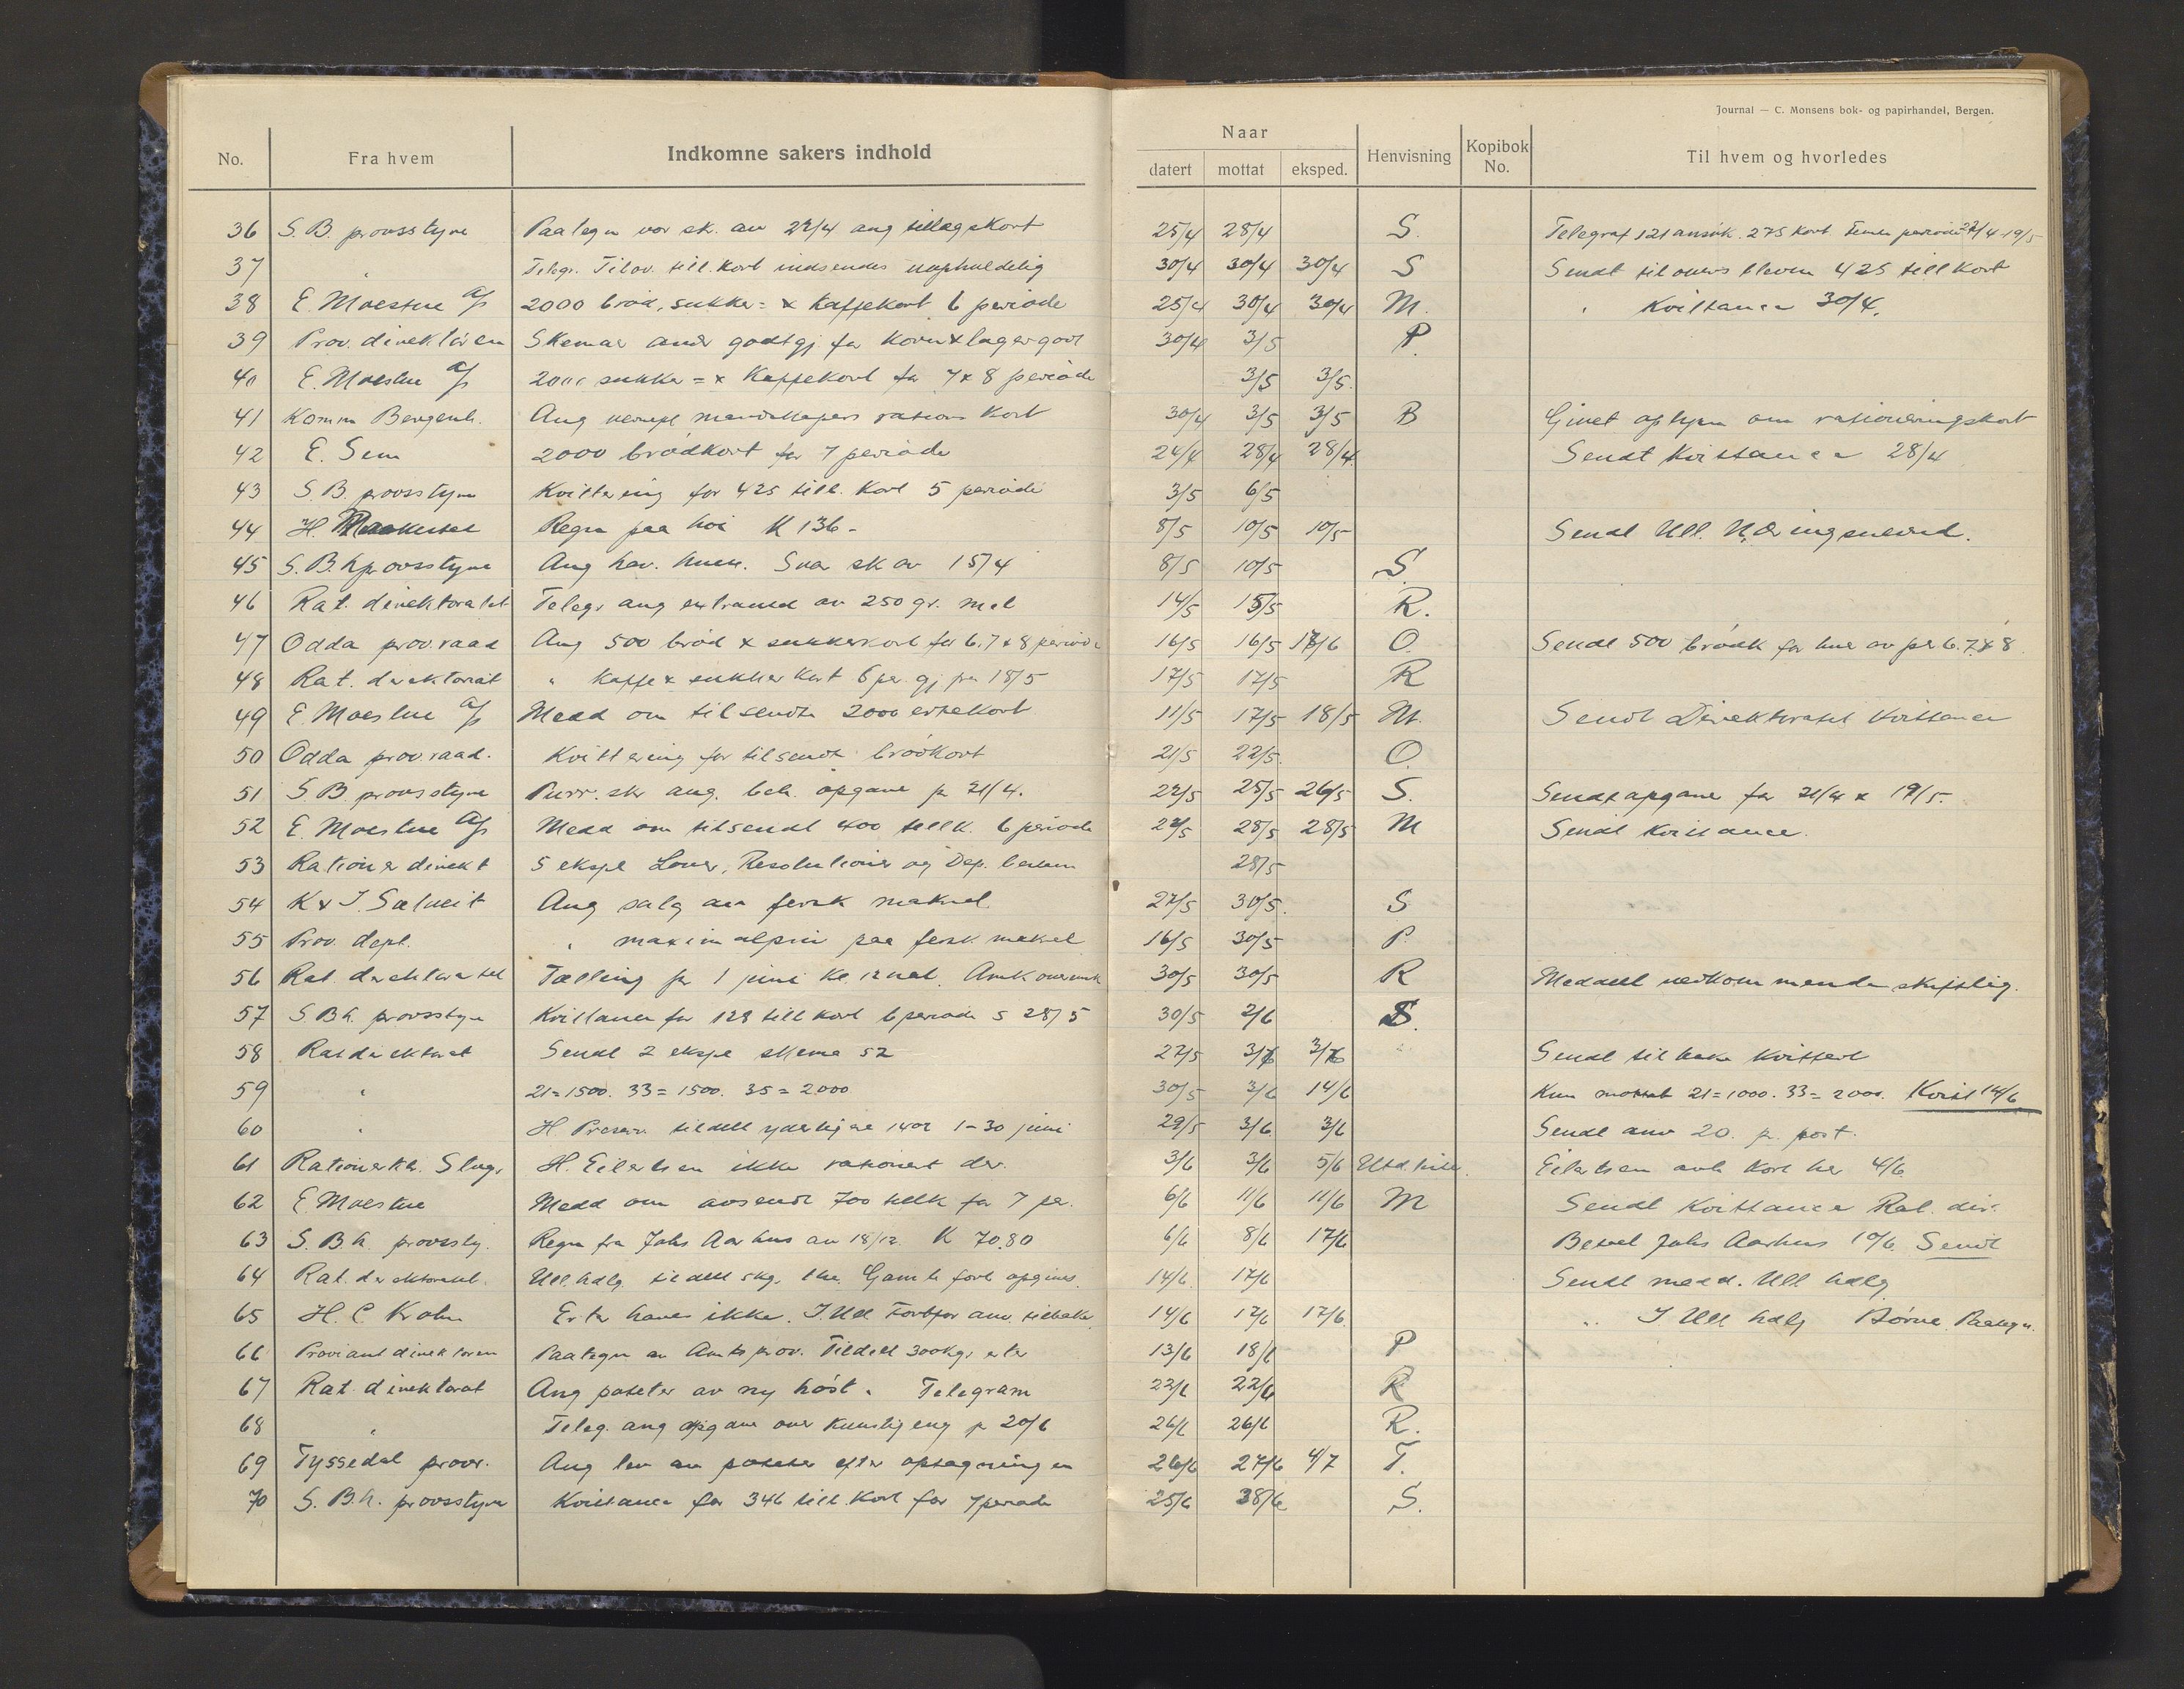 Journal — C. Monsens bok- og papirhandel, Bergen.
No. Fra hvem Indkomne sakers indhold Naar datert mottat eksped. Henvisning Kopibok No. Til hvem og hvorledes
36 S. B. provsstyre Paategn vor sk. av 22/4 ang tillægskort 25/4 28/4 S. Telegraf 121 ansøk. 275 kort
37 " Telegr. Tilov. till. kort indsendes uophuldelig 30/4 30/4 30/4 S Sendt tilovers bleven 425 till kort
38 E. Moestue A/s 2000 brød, sukker= & Kaffekort 6 periode 25/4 30/4 30/4 M. " Kvittance 30/4.
39 Prov. direktøren Skemaer godtgj. for 30/4 3/5 P.
40 E. Moestue A/s 2000 sukker= & Kaffekort for 7 & 8 periode 3/5 3/5.
41 Komm Bergenh. Ang mandskapers rations kort 30/4 3/5 3/5 B Givet oplysn om rationeringskort
42 E. Sem 2000 brødkort for 7 periode 24/4 28/4 28/4 Sendt Kvittance 28/4
43 S. B. provsstyre Kvittering for 425 till. Kort 5 periode 3/5 6/5
44 H. Regn paa høi K 136- 8/5 10/5 10/5 Sendt Ull.
45 S. B. h provsstyre Ang hav. Svar sk av 15/4 8/5 10/5 S.
46 Rat. direktoratet Telegr ang extramel av 250 gr. mel 14/5 15/5 R.
47 Odda prov. raad Ang 500 brød & sukkerkort for 6. 7 & 8 periode 16/5 16/5 17/6 O. Sendt 500 brødk for hver av per 6. 7. & 8.
48 Rat. direktorat " Kaffe & sukker kort 6 per. gj fra 18/5 17/5 17/5 R
49 E. Moestue A/s Medd om tilsendte 2000 ertekort 11/5 17/5 18/5 M. Sendt Direktoratet Kvittance
50 Odda prov. raad. Kvittering for tilsendt brødkort 21/5 22/5. O.
51 S. B. provsstyre Purr. skr ang. beh. opgave pr 21/4. 22/5 25/5 26/5 S. Sendt opgave for 21/4 & 19/5.
52 E. Moestue A/s Medd om tilsendt 400 tillk. 6 periode 28/5 28/5 M Sendt Kvittance.
53 Rationer direkt 5 ekspl Lover, Resolutioner og Dep. bestem 28/5
54 K & J. Sælveit Ang salg av fersk makrel. 27/5 30/5. S
55 Prov. dept. " maximalpris paa fersk makrel 16/5 30/5 P.
56 Rat. direktoratet Tælling pr 1 juni 30/5 30/5 R Meddelt vedkommende skriftlig.
57 S B h. provsstyre Kvittance for 128 till kort 6 periode s 28/5 30/5 2/6 S.
58 Rat direktorat Sendt 2 ekspl skema 52 27/5 3/6 3/6 Sendt tilbake Kvittert
59 " 21=1500. 33=1500. 35=2000 30/5 3/6 14/6 Kun mottat 21=1000. 33=2000. Kvitt 14/6
60 " H. tildelt yderligere 1-30 juni 29/5 3/6 3/6 Sendt anv 20. pr. post.
61 H. Eilertsen ikke rationert der. 3/6 3/6 5/6 Eilertsen kort her 4/6
62 E Moestue Medd om avsendt 700 tillk for 7 per. 6/6 11/6 11/6 M Sendt Kvittance Rat. dir.
63 S. B. h. provssty. Regn fra Johs Aarhus av 18/12 K 70.80 6/6 8/6 17/6 Betalt Johs Aarhus 10/6. Sendt
64 Rat. direktoratet. 14/6. 17/6 Sendt medd. Ull
65 H. C. Krohn Erter haves ikke. 14/6 17/6 17/6
66 Proviant direktøren Paategn av Amtsprov. Tildelt 300 kg. erter 13/6 18/6 P
67 Rat. direktorat Ang poteter av ny høst. Telegram 22/6 22/6 R
68 " Teleg. ang opgave over kunstig eng pr 20/6 26/6 26/6 R.
69 Tyssedal provr. Ang lev av poteter efter optagningen 26/6 27/6 4/7 T.
70 S. B. h. provsstyre Kvittance for 346 till kort for 7 periode 25/6 28/6 S.